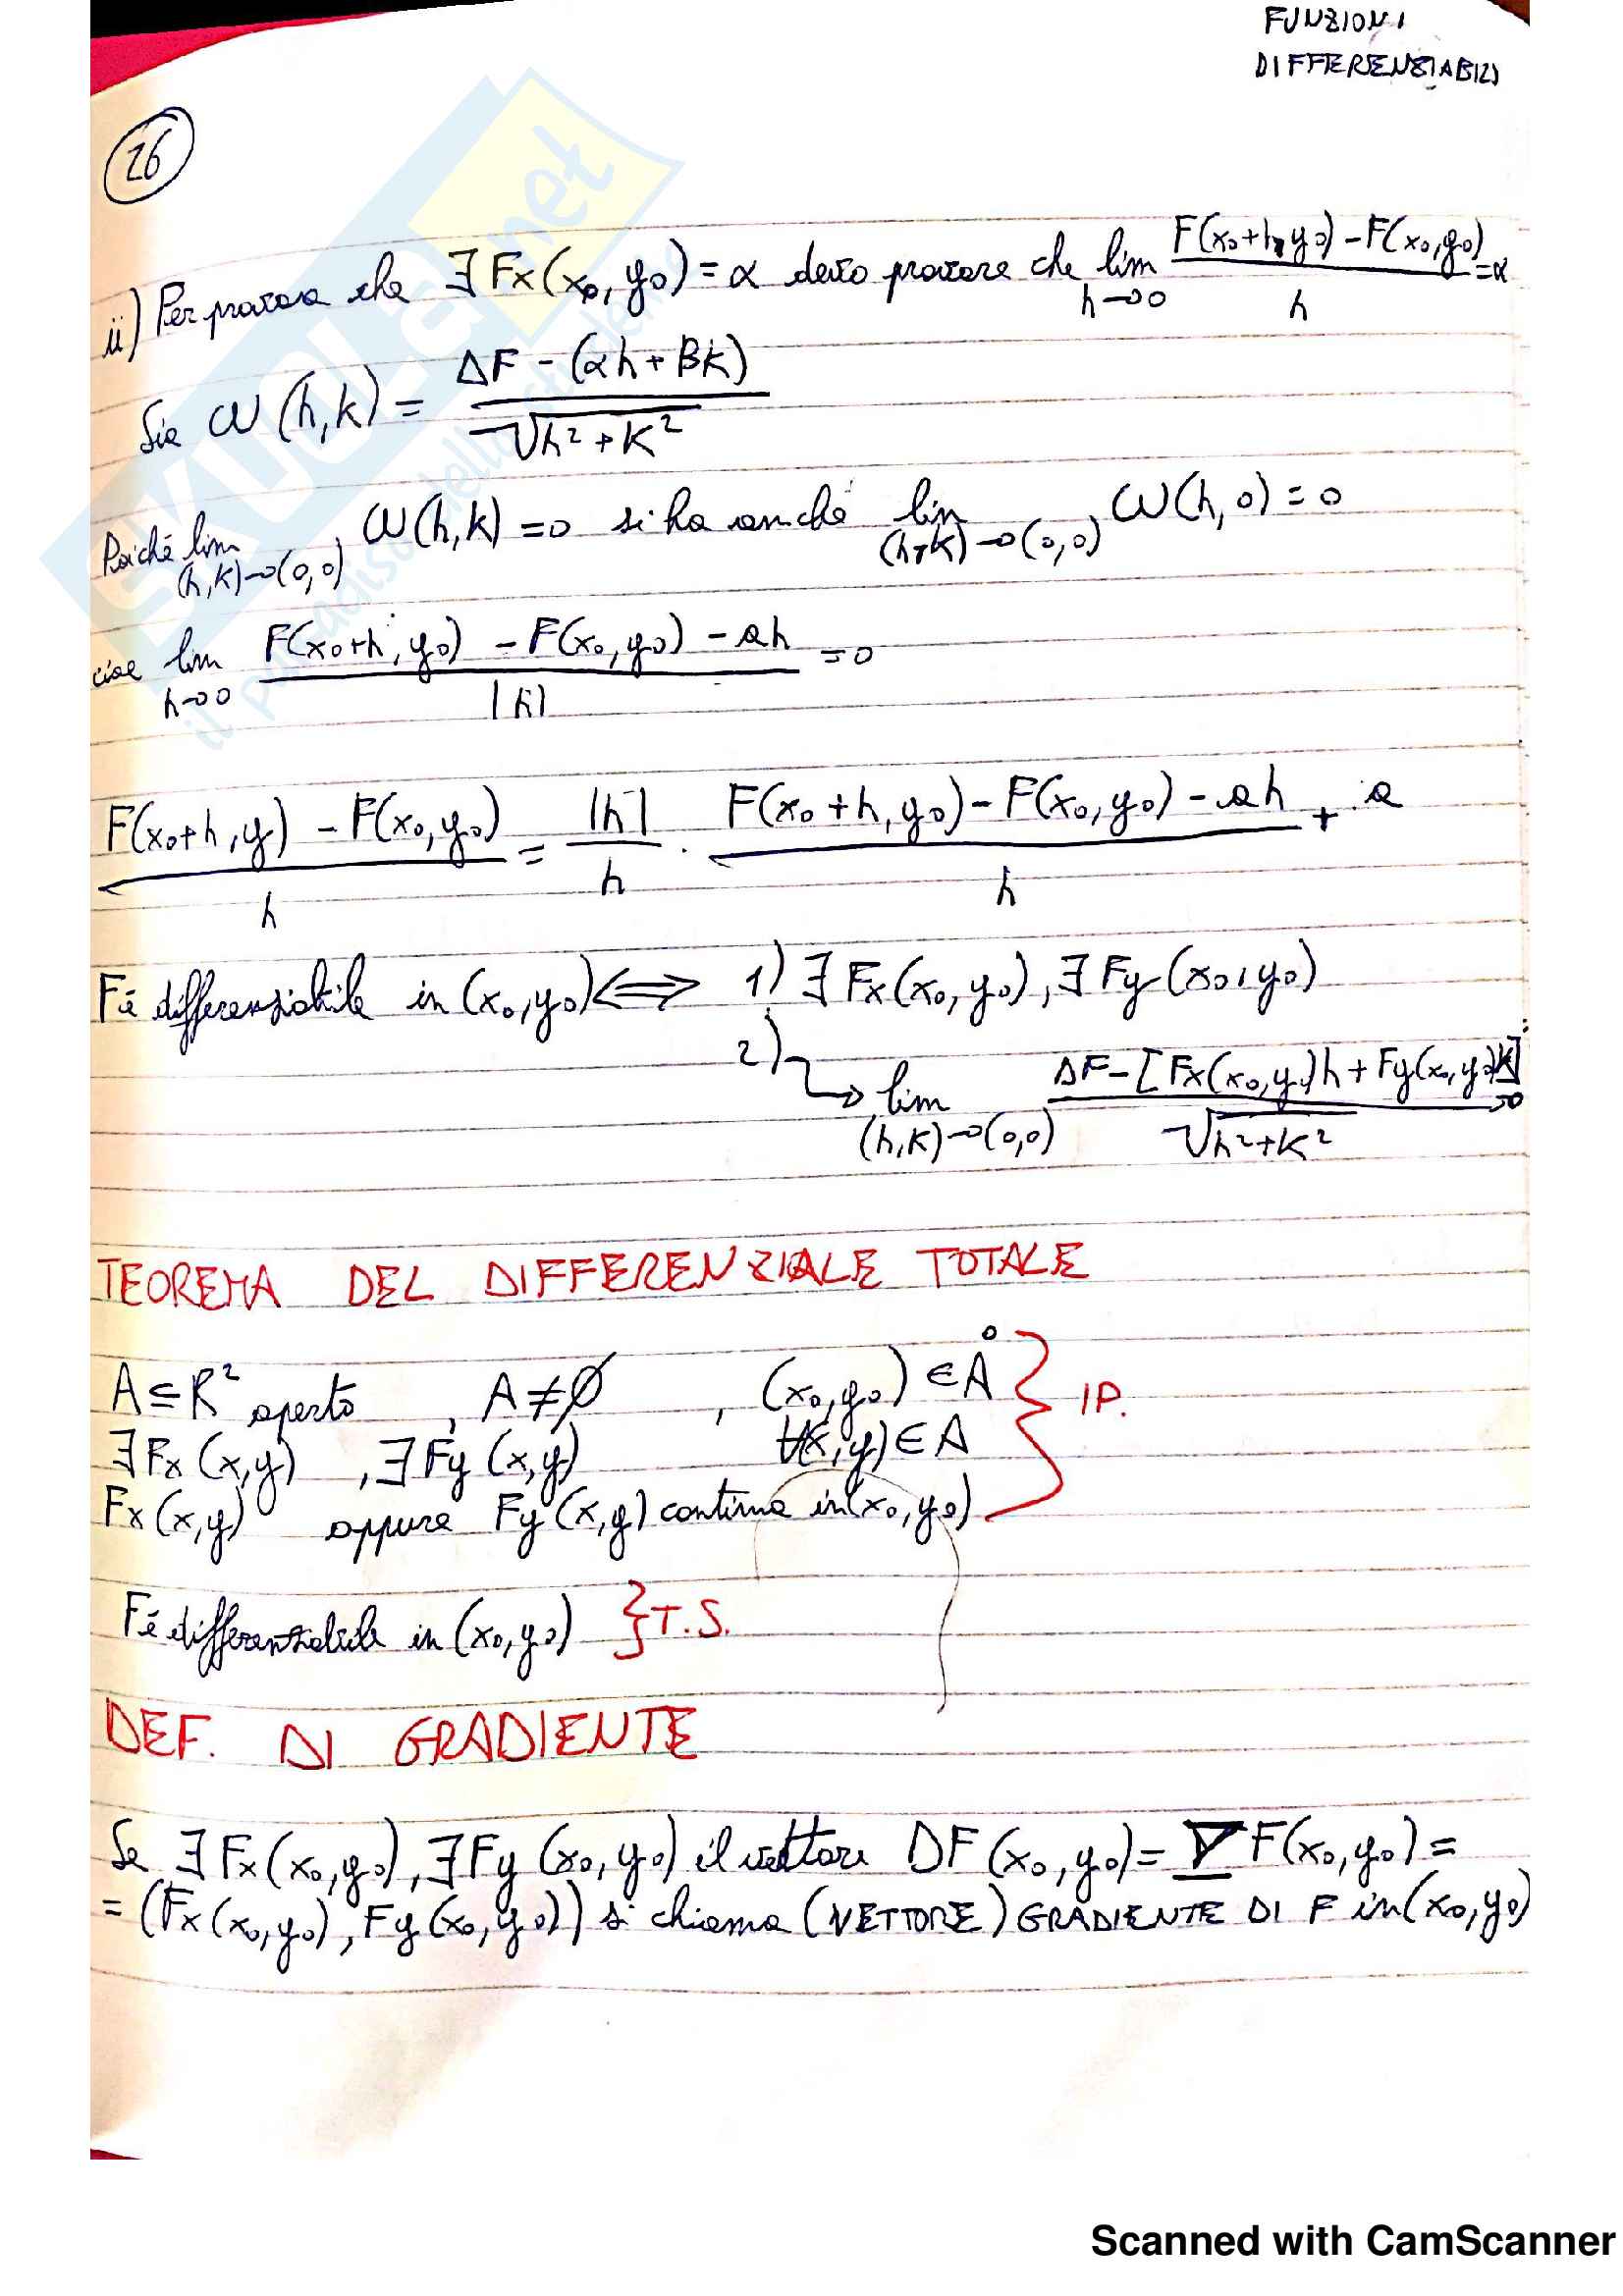 FUNZIONI
DIFFERENZIABILI
26
ii) Per provare che ∃ Fx(x₀, y₀) = α devo provare che lim h→0 F(x₀+h, y₀) - F(x₀, y₀) / h = α
Sia ω(h,k) = ΔF - (αh + βk) / √h² + k²
Poiché lim (h,k)→(0,0) ω(h,k) = 0 si ha anche lim (h,k)→(0,0) ω(h,0) = 0
cioè lim h→0 F(x₀+h, y₀) - F(x₀, y₀) - ah / |h| = 0
F(x₀+h, y) - F(x₀, y₀) / h = |h| / h · F(x₀+h, y₀) - F(x₀, y₀) - ah / h + a
F é differenziabile in (x₀, y₀) ⟺ 1) ∃ Fx(x₀, y₀), ∃ Fy(x₀, y₀)
2) → lim (h,k)→(0,0) ΔF - [Fx(x₀, y₀)h + Fy(x₀, y₀)k] / √h² + k² → 0
TEOREMA DEL DIFFERENZIALE TOTALE
A ⊆ R² aperto , A ≠ ∅ , (x₀, y₀) ∈ Å
∃ Fx(x,y) , ∃ Fy(x,y) ∀(x,y) ∈ A } IP.
Fx(x,y) oppure Fy(x,y) continua in (x₀, y₀)
F é differenziabile in (x₀, y₀) } T.S.
DEF. DI GRADIENTE
Se ∃ Fx(x₀, y₀), ∃ Fy(x₀, y₀) il vettore DF(x₀, y₀) = ∇F(x₀, y₀) =
= (Fx(x₀, y₀), Fy(x₀, y₀)) si chiama (VETTORE) GRADIENTE DI F in (x₀, y₀)
SKUOLA.net
il paradiso dello studente
Scanned with CamScanner